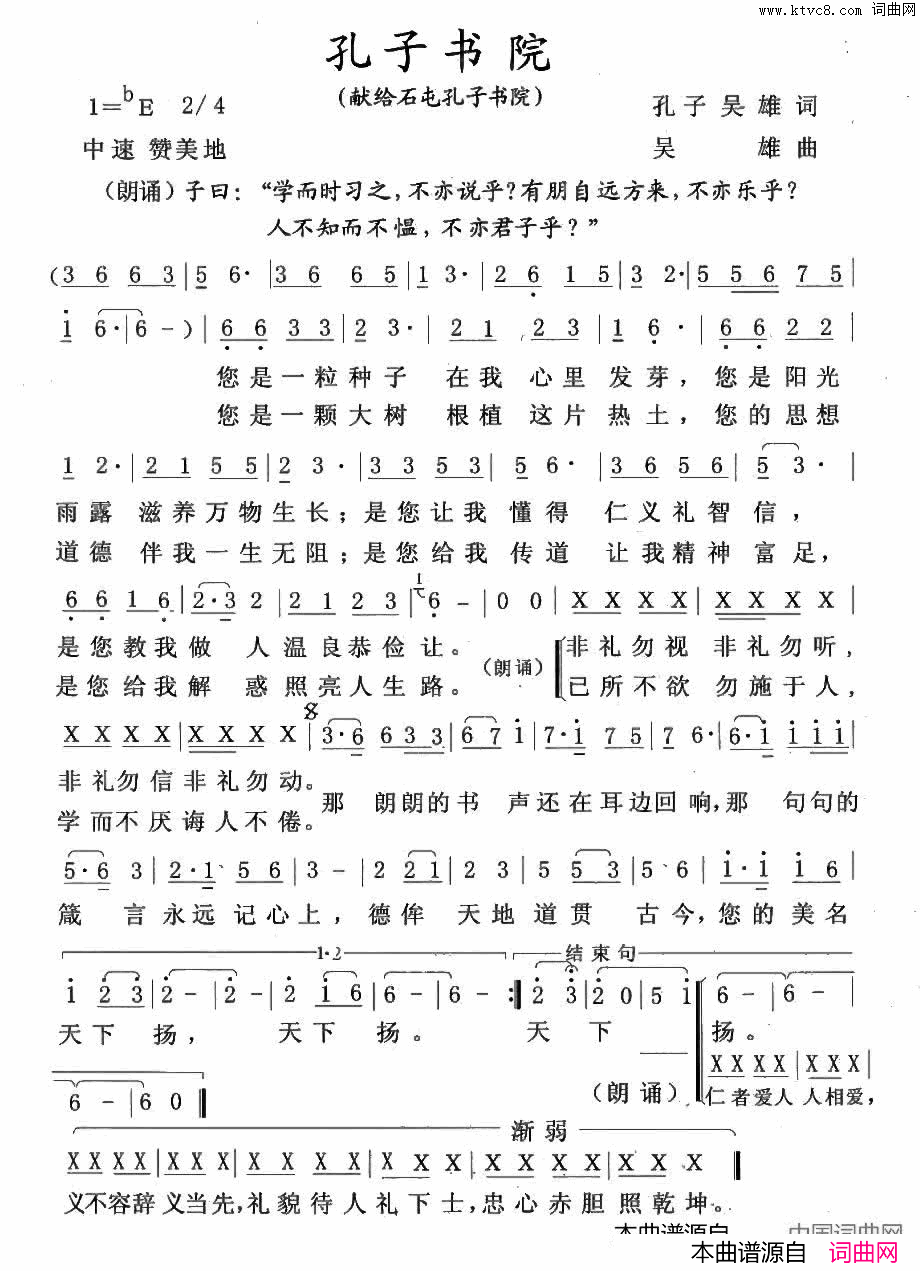 www.ktvc8.com 词曲网
孔子书院
(献给石屯孔子书院)
1=bE 2/4
孔子吴雄词
中速 赞美地
吴 雄曲
(朗诵)子曰：“学而时习之，不亦说乎？有朋自远方来，不亦乐乎？
人不知而不愠，不亦君子乎？”
(3 6 6 3|5 6·|3 6 6 5|1 3·|2 6 1 5|3 2·|5 5 6 7 5|
1 6·|6 -)|6 6 3 3|2 3·|2 1 2 3|1 6·|6 6 2 2|
您是一粒种子 在我 心里 发芽，您是阳光
您是一颗大树 根植 这片 热土，您的思想
1 2·|2 1 5 5|2 3·|3 3 5 3|5 6·|3 6 5 6|5 3·|
雨露 滋养万物生长；是您让我 懂得 仁义礼智信，
道德 伴我一生无阻；是您给我 传道 让我精神富足，
6 6 1 6|2·3 2|2 1 2 3|1 6 -|0 0|X X X X|X X X X|
是您教我做 人温良恭俭让。 (朗诵) 非礼勿视 非礼勿听，
是您给我解 惑照亮人生路。 已所不欲 勿施于人，
X X X X|X X X X|3·6 6 3 3|6 7 1|7·1 7 5|6 7 6|6·1 1 1 1|
非礼勿信非礼勿动。
学而不厌诲人不倦。
那 朗朗的书 声还在耳边回响，那 句句的
5·6 3|2·1 5 6|3 -|2 2 1|2 3|5 5 3|5 6|1·1 1 6|
箴 言永远记心上，德侔 天地道贯 古今，您的美名
1·2 结束句
1 2 3|2 -|2 -|2 1 6|6 -|6 -:|2 3|2 0|5 1|6 -|6 -|
天下 扬， 天下 扬。 天 下 扬。
X X X X|X X X X|
6 -|6 0‖
(朗诵) 仁者爱人 人相爱，
渐弱
X X X X|X X X X|X X X X|X X X X|X X X X|X X X‖
义不容辞义当先，礼貌待人礼下士，忠心赤胆照乾坤。
本曲谱源自 中国词曲网
本曲谱源自 词曲网